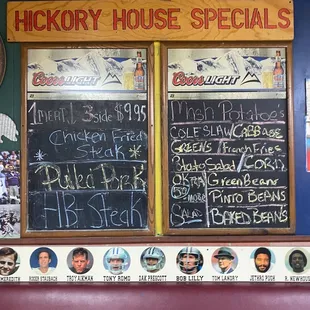 HICKORY HOUSE SPECIALS
Coors LIGHT
1 MEAT 3 side $9.95
Chicken Fried
Steak
Pulled Pork
HB-Steak
Coors LIGHT
Mash Potatoes
COLESLAW/CABBAGE
GREENS/French Fries
Potato Salad/CORN
OKRA Green Beans
PINTO BEANS
SALAD BAKED BEANS
MEREDITH
ROGER STAUBACH
TROY AIKMAN
TONY ROMO
DAK PRESCOTT
BOB LILLY
TOM LANDRY
JETHRO PUGH
R. NEWHOUSE